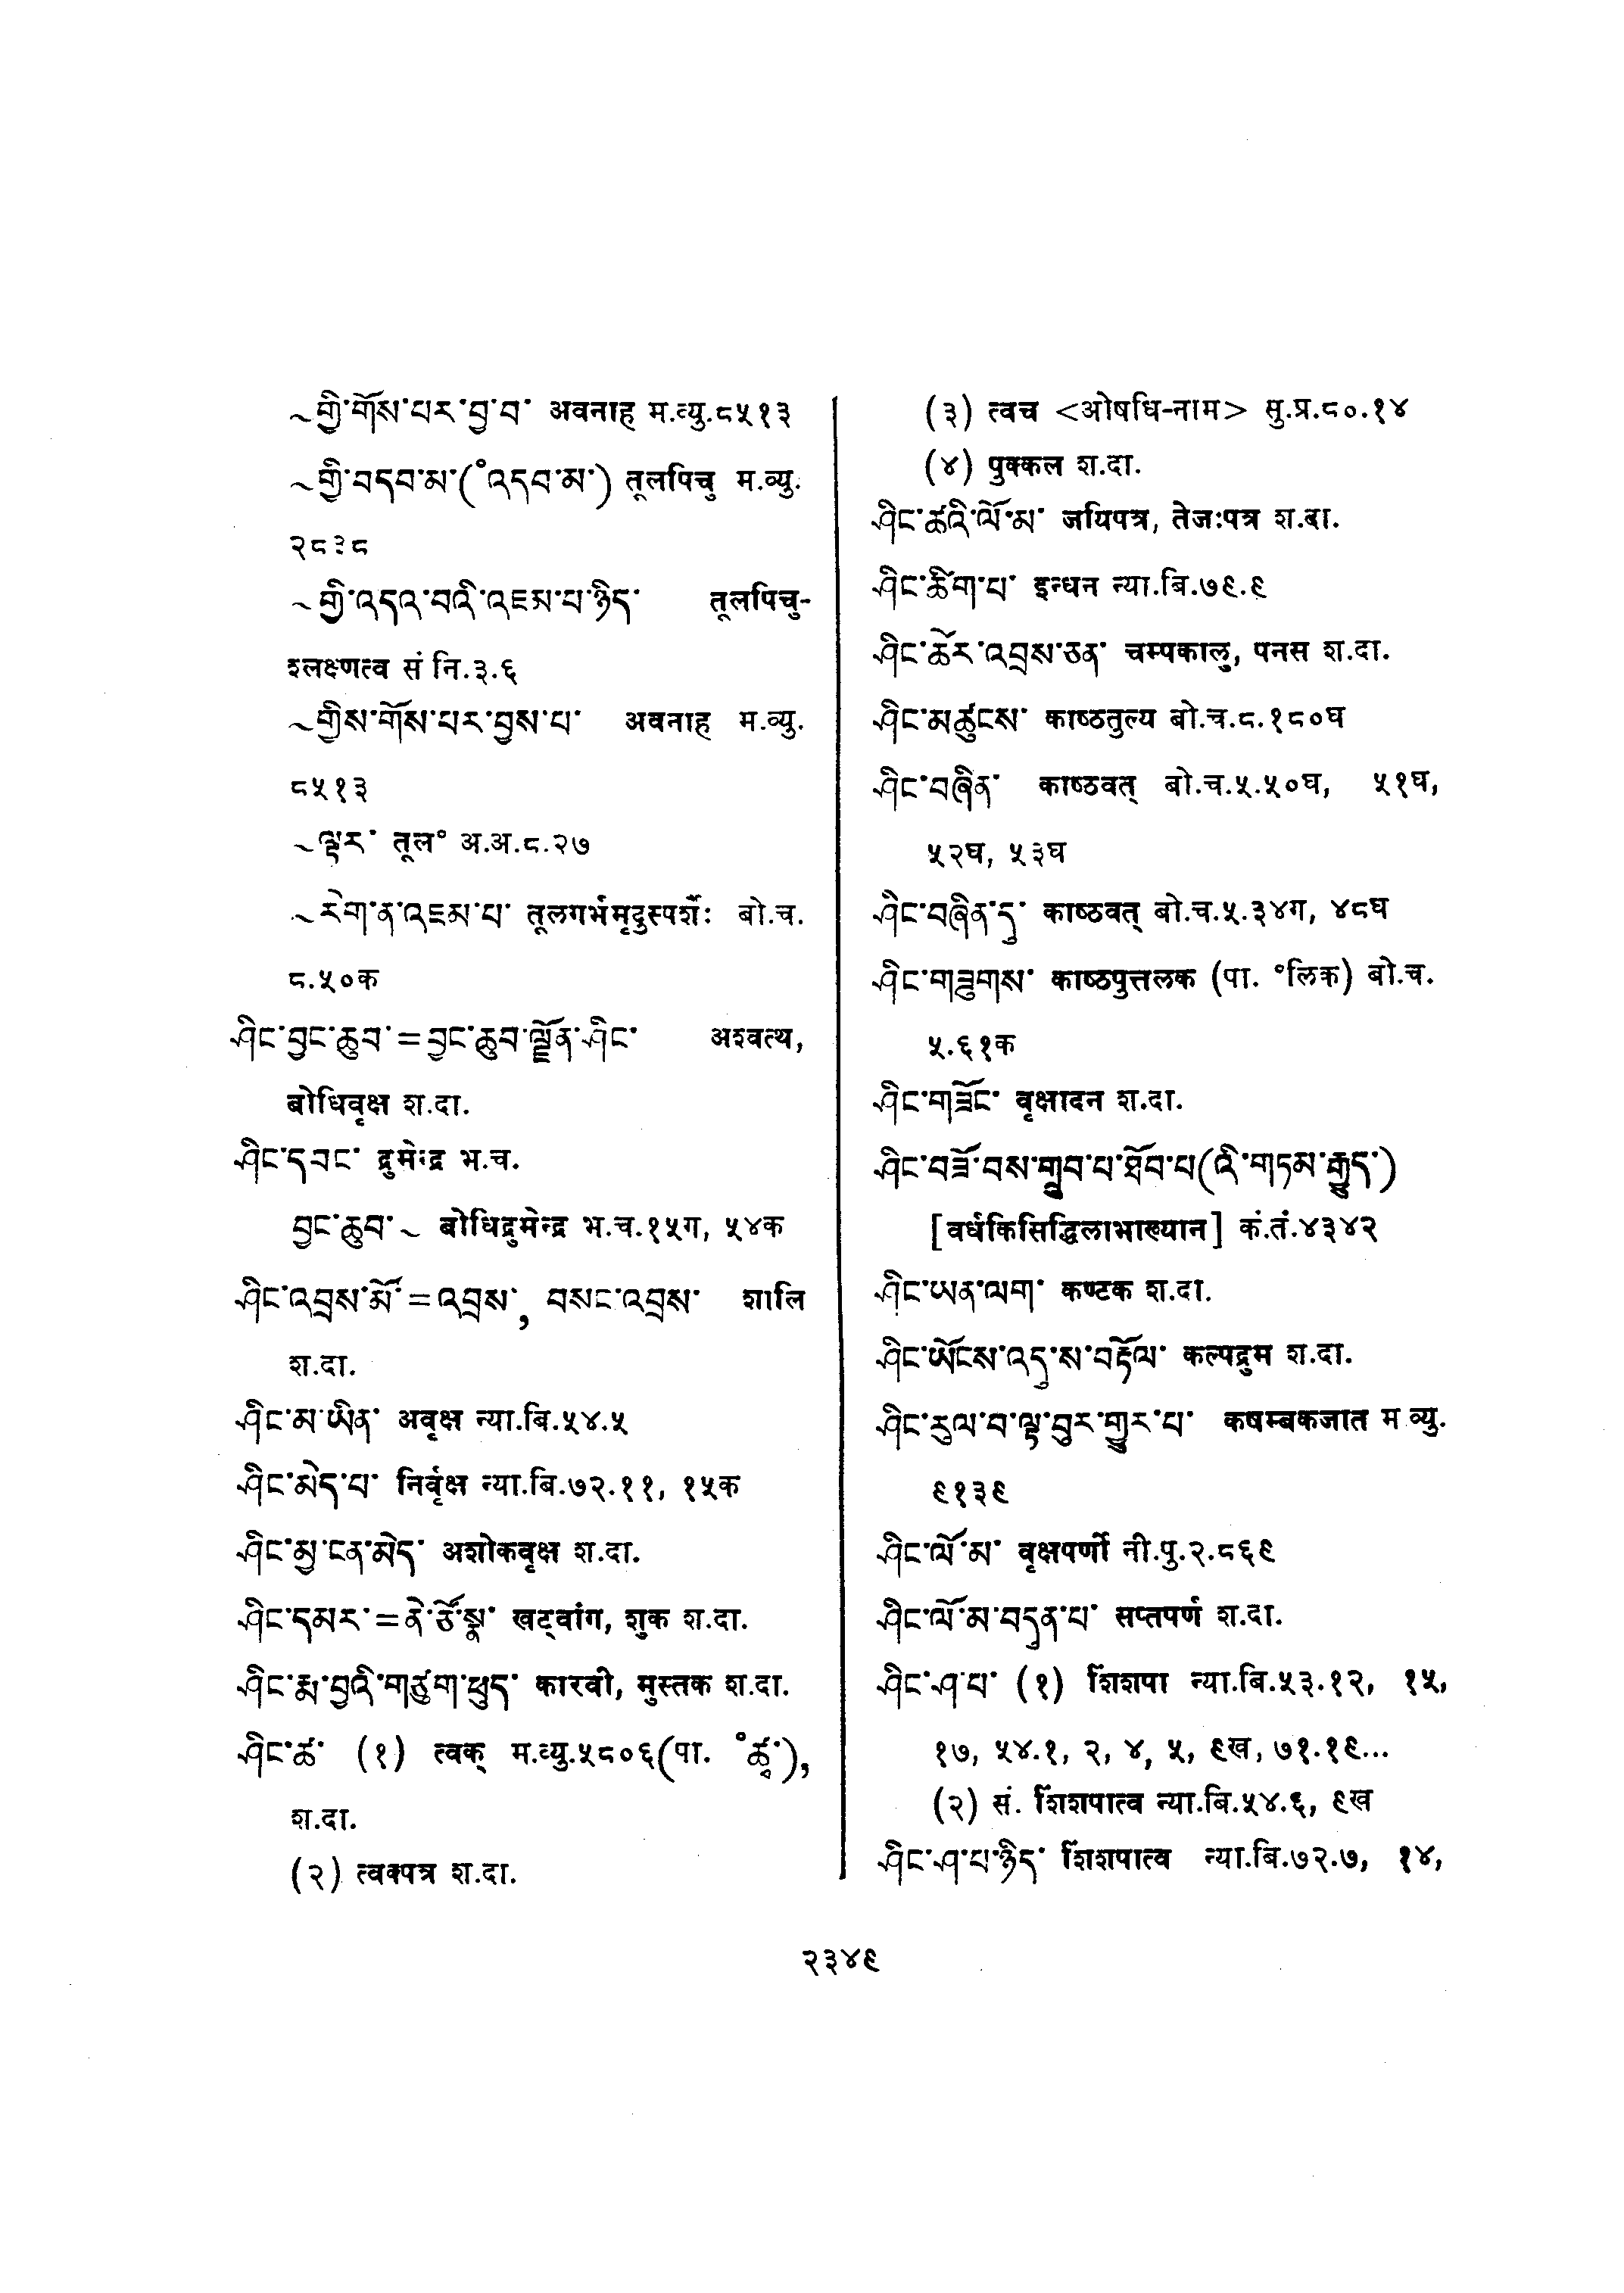 ~གྱི་གོས་པར་བྱ་བ་ अवनाह म.व्यु.८५१३
~གྱི་བདབ་མ་(°འདབ་མ་) तूलपिचु म.व्यु.
२८३८
~གྱི་འདའ་བའི་འཇམ་པ་ཉིད་ तूलपिचु-
श्लक्ष्णत्व सं नि.३.६
~གྱིས་གོས་པར་བྱས་པ་ अवनाह म.व्यु.
८५१३
~ལྟར་ तूल° अ.अ.८.२७
~རེག་ན་འཇམ་པ་ तूलगर्भमृदुस्पर्शैः बो.च.
८.५०क
ཤིང་བྱང་ཆུབ་=བྱང་ཆུབ་ལྗོན་ཤིང་ अश्वत्थ,
बोधिवृक्ष श.दा.
ཤིང་དབང་ द्रुमेन्द्र भ.च.
བྱང་ཆུབ་~ बोधिद्रुमेन्द्र भ.च.१५ग, ५४क
ཤིང་འབྲས་མོ་=འབྲས་, བསང་འབྲས་ शालि
श.दा.
ཤིང་མ་ཡིན་ अवृक्ष न्या.बि.५४.५
ཤིང་མེད་པ་ निर्वृक्ष न्या.बि.७२.११, १५क
ཤིང་མྱ་ངན་མེད་ अशोकवृक्ष श.दा.
ཤིང་དམར་=ནེ་ཙོ་སྣ་ खट्वांग, शुक श.दा.
ཤིང་རྨ་བྱའི་གཙུག་ཕུད་ कारवी, मुस्तक श.दा.
ཤིང་ཚ་ (१) त्वक् म.व्यु.५८०६(पा. °ཚྭ་),
श.दा.
(२) त्वक्पत्र श.दा.
(३) त्वच <ओषधि-नाम> सु.प्र.८०.१४
(४) पुक्कल श.दा.
ཤིང་ཚའི་ལོ་མ་ जयिपत्र, तेजःपत्र श.दा.
ཤིང་ཚིག་པ་ इन्धन न्या.बि.७९.९
ཤིང་ཚེར་འབྲས་ཅན་ चम्पकालु, पनस श.दा.
ཤིང་མཚུངས་ काष्ठतुल्य बो.च.८.१८०घ
ཤིང་བཞིན་ काष्ठवत् बो.च.५.५०घ, ५१घ,
५२घ, ५३घ
ཤིང་བཞིན་དུ་ काष्ठवत् बो.च.५.३४ग, ४८घ
ཤིང་གཟུགས་ काष्ठपुत्तलक (पा. °लिक) बो.च.
५.६१क
ཤིང་གཟོང་ वृक्षादन श.दा.
ཤིང་བཟོ་བས་གྲུབ་པ་ཐོབ་པ(འི་གཏམ་རྒྱུད་)
[वर्धकिसिद्धिलाभाख्यान] कं.तं.४३४२
ཤིང་ཡན་ལག་ कण्टक श.दा.
ཤིང་ཡོངས་འདུ་ས་བརྟོལ་ कल्पद्रुम श.दा.
ཤིང་རུལ་བ་ལྟ་བུར་གྱུར་པ་ कषम्बकजात म व्यु.
९१३९
ཤིང་ལོ་མ་ वृक्षपर्णी नी.पु.२.८६९
ཤིང་ལོ་མ་བདུན་པ་ सप्तपर्ण श.दा.
ཤིང་ཤ་པ་ (१) शिंशपा न्या.बि.५३.१२, १५,
१७, ५४.१, २, ४, ५, ९ख, ७१.१९...
(२) सं. शिंशपात्व न्या.बि.५४.६, ९ख
ཤིང་ཤ་པ་ཉིད་ शिंशपात्व न्या.बि.७२.७, १४,
२३४९